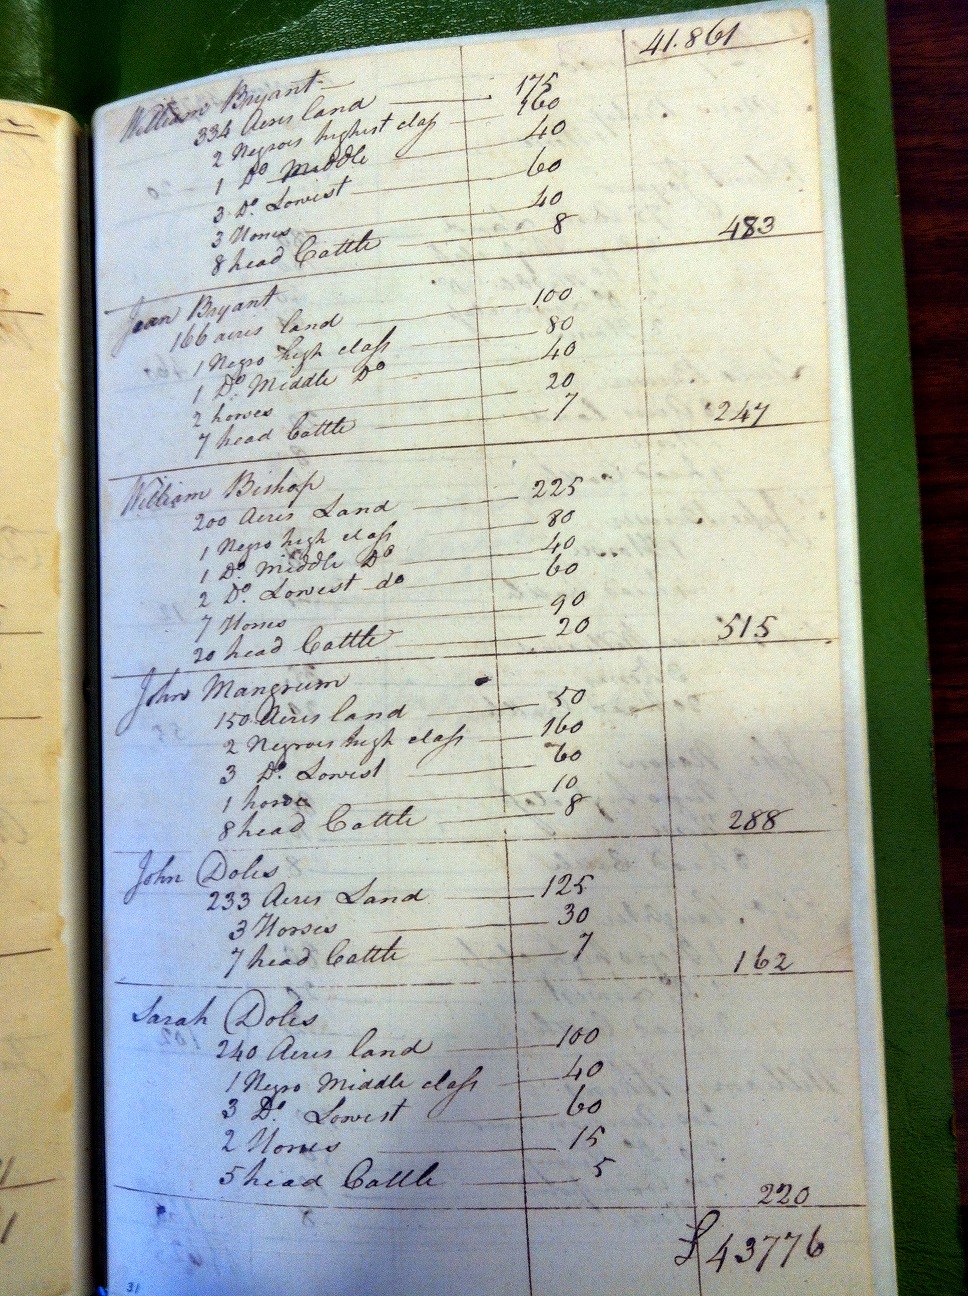 41.861
William Bryant
334 Acres land 175
2 Negroes highest class 160
1 Do Middle 40
3 Do. Lowest 60
3 Horses 40
8 head Cattle 8 483
Jean Bryant
166 acres land 100
1 Negro high class 80
1 Do. Middle Do 40
2 horses 20
7 head Cattle 7 247
William Bishop
200 Acres Land 225
1 Negro high class 80
1 Do. Middle Do 40
2 Do. Lowest do 60
7 Horses 90
20 head Cattle 20 515
John Mangrum
150 Acres land 50
2 Negroes high class 160
3 Do. Lowest 60
1 horse 10
8 head Cattle 8 288
John Doles
233 Acres Land 125
3 Horses 30
7 head Cattle 7 162
Sarah Doles
240 Acres land 100
1 Negro Middle class 40
3 Do. Lowest 60
2 Horses 15
5 head Cattle 5 220
£43776
31